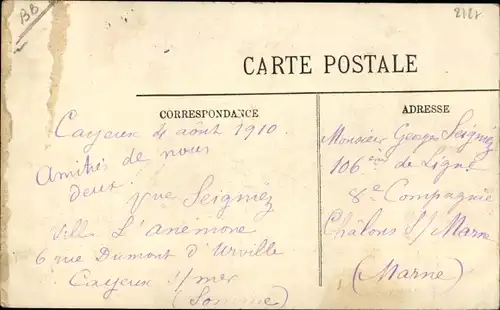 BB
2121
CARTE POSTALE
CORRESPONDANCE
Cayeux 4 août 1910.
Amitiés de nous
deux.
Vve Seigniéz
Villa L'anémone
6 rue Dumont d'Urville
Cayeux s/mer
(Somme)
ADRESSE
Monsieur Georges Seigniéz
106ème de Ligne
8e Compagnie
Châlons s/ Marne
(Marne)